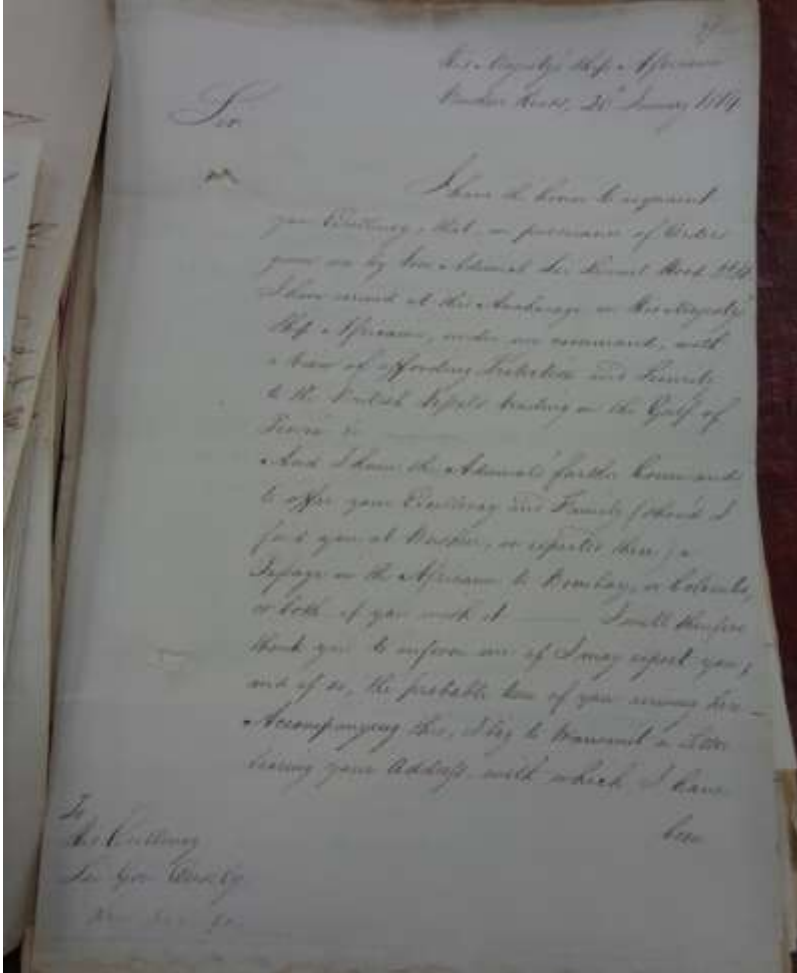 His Majesty's Ship Africaine
Roads, 20th January 1814
Sir
I have the honor to acquaint
your Excellency, that, in pursuance of Orders
given me by Vice Admiral Sir Samuel Hood
I have arrived at this Anchorage in His Majesty's
Ship Africaine, under my command, with
a view of affording Protection and Security
to the British Vessels trading in the Gulf of
Persia
And I have the Admiral's further Commands
to offer your Excellency and Family (should I
find you at or expected there,) a
Passage in the Africaine to Bombay, or Columbo,
or both if you wish it I will therefore
thank you to inform me if I may expect you,
and if so, the probable time of your coming here
Accompanying this, I beg to transmit a Letter
bearing your Address, with which I have
been
To
His Excellency
Sir Gore Ouseley